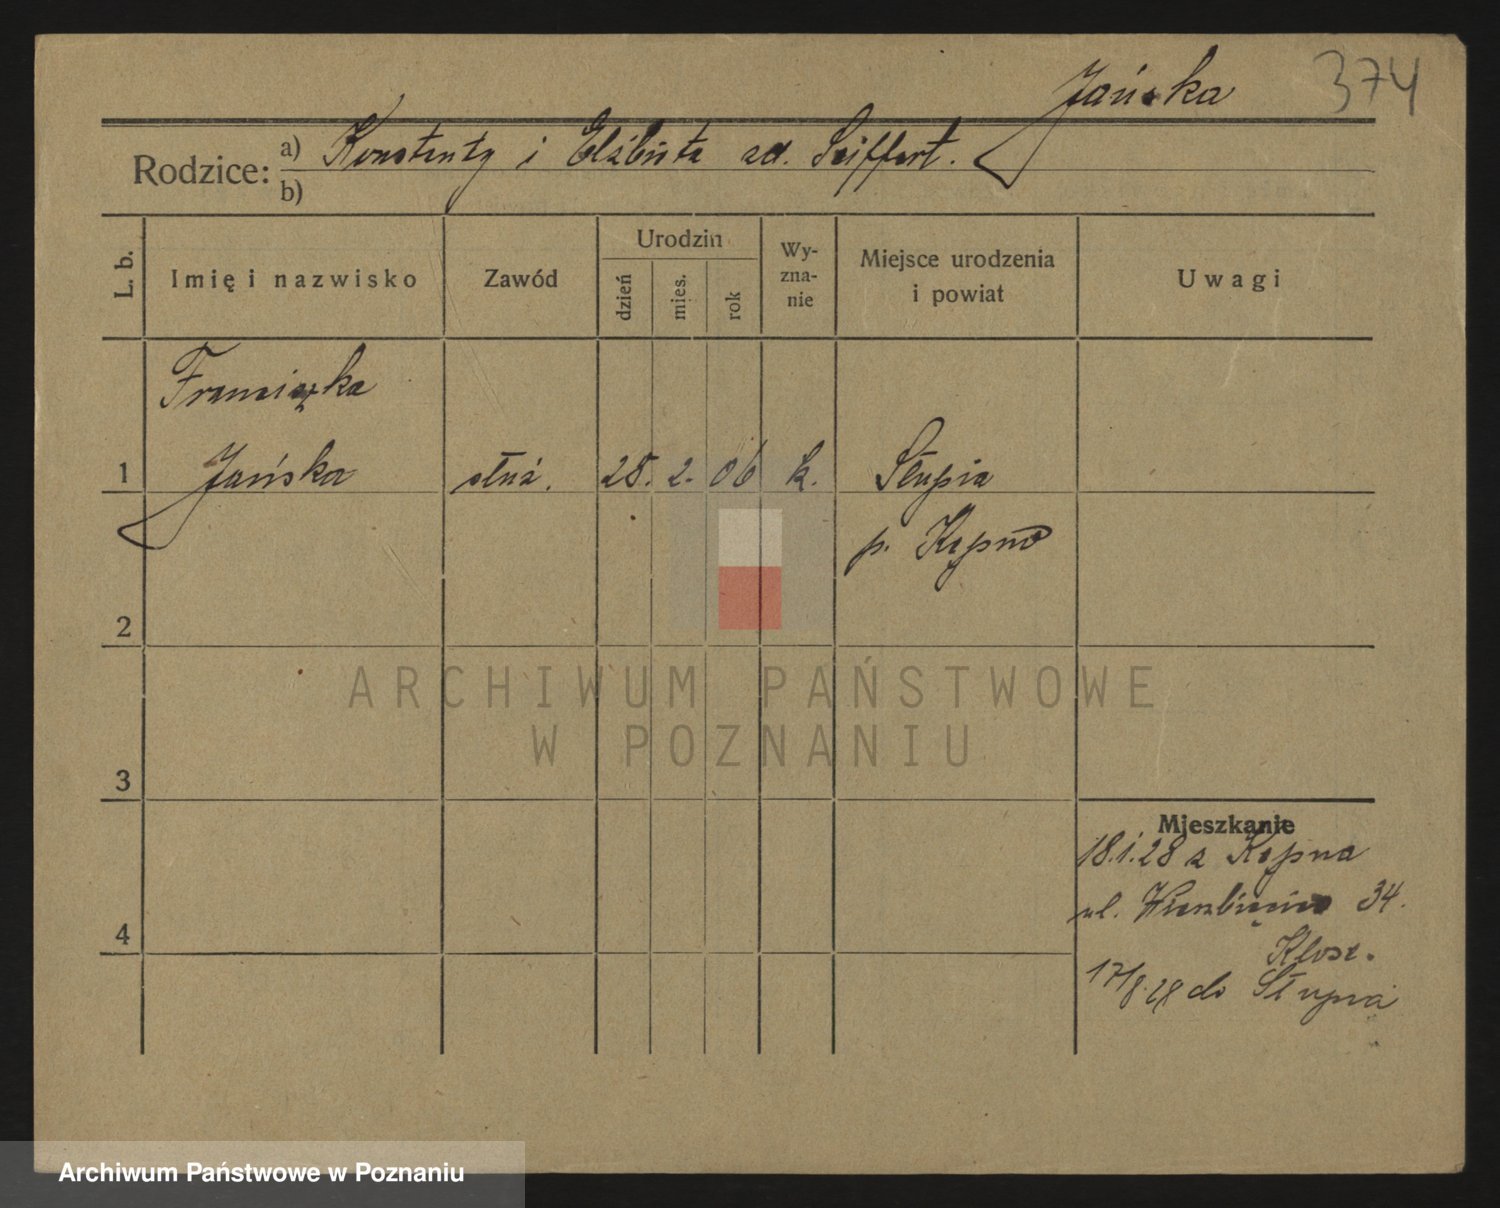 Jańska 374
Rodzice: a) Konstanty i Elżbieta zd. Seiffert.
b)
L. b. Imię i nazwisko Zawód Urodzin dzień mies. rok Wyzna-nie Miejsce urodzenia i powiat Uwagi
Franciszka
1 Jańska służ. 28. 2. 06 k. Słupia
p. Kępno
2
ARCHIWUM PAŃSTWOWE
W POZNANIU
3
Mieszkanie
18.1.28 z Kępna
ul. Wierzbięcice 34.
4
Klosz.
17/8.28 do Słupia
Archiwum Państwowe w Poznaniu